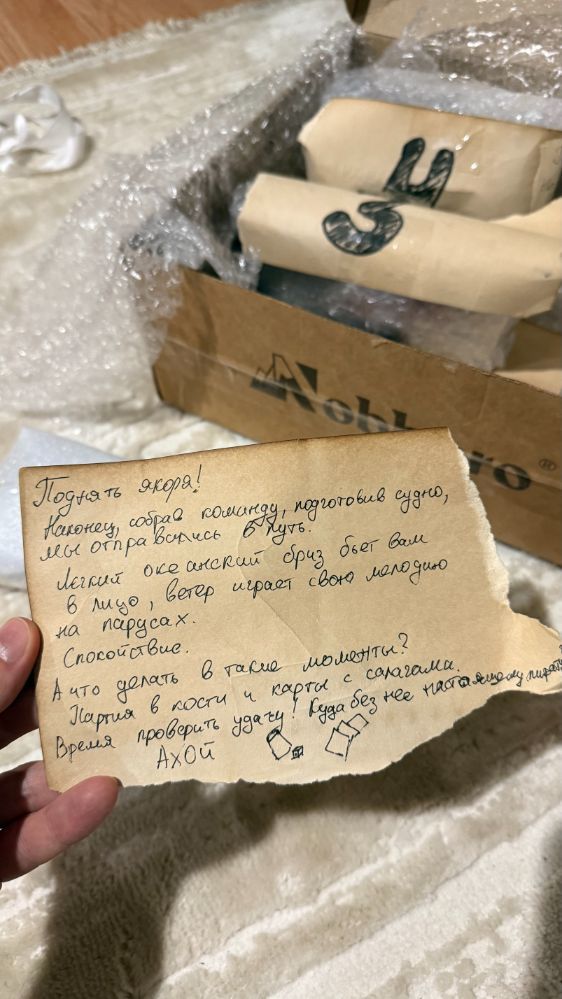 4
3
Nobhero®
Поднять якоря!
Наконец, собрав команду, подготовив судно,
мы отправились в путь.
Легкий океанский бриз бьет вам
в лицо, ветер играет свою мелодию
на парусах.
Спокойствие.
А что делать в такие моменты?
Партия в кости и карты с салагами.
Время проверить удачу! Куда без нее настоящему пирату?
АХОЙ